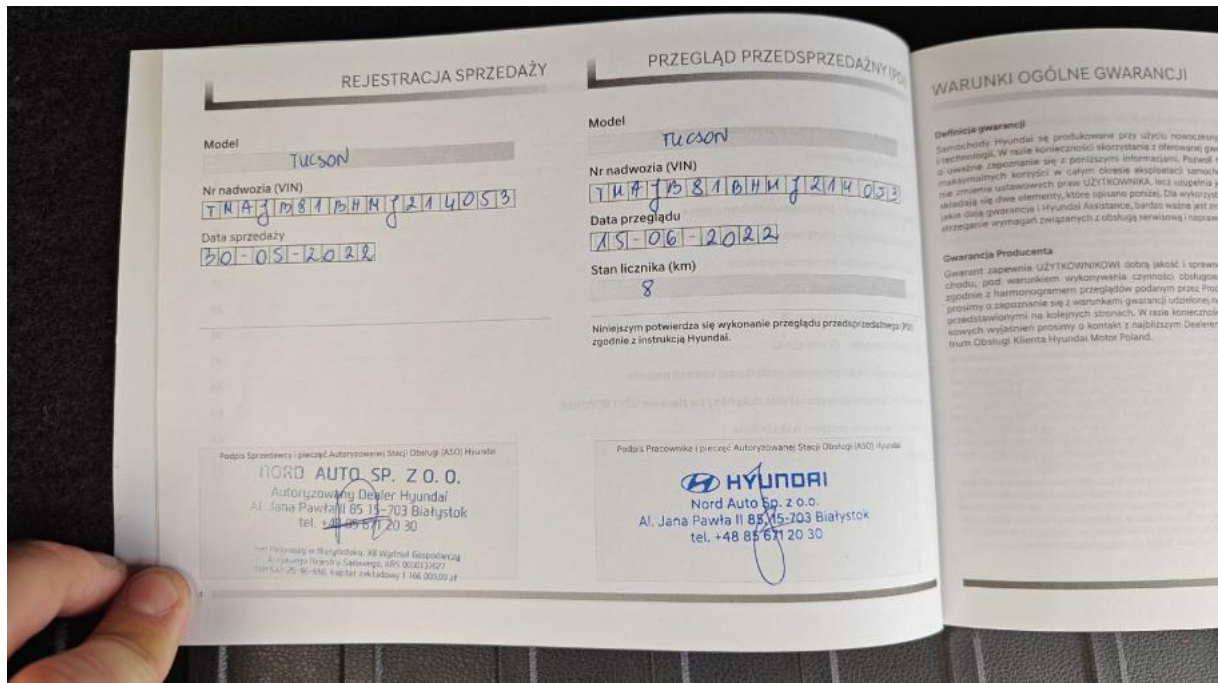 REJESTRACJA SPRZEDAŻY
Model
TUCSON
Nr nadwozia (VIN)
TMAJB81BHMJ214053
Data sprzedaży
30-05-2022
Podpis Sprzedawcy i pieczęć Autoryzowanej Stacji Obsługi (ASO) Hyundai
NORD AUTO SP. Z O. O.
Autoryzowany Dealer Hyundai
Al. Jana Pawła II 85 15-703 Białystok
tel. +48 85 671 20 30
PRZEGLĄD PRZEDSPRZEDAŻNY (PDI)
Model
TUCSON
Nr nadwozia (VIN)
TMAJB81BHMJ214053
Data przeglądu
15-06-2022
Stan licznika (km)
8
Niniejszym potwierdza się wykonanie przeglądu przedsprzedażnego (PDI)
zgodnie z instrukcją Hyundai.
Podpis Pracownika i pieczęć Autoryzowanej Stacji Obsługi (ASO) Hyundai
HYUNDAI
Nord Auto Sp. z o.o.
Al. Jana Pawła II 85, 15-703 Białystok
tel. +48 85 671 20 30
WARUNKI OGÓLNE GWARANCJI
Definicja gwarancji
Samochody Hyundai są produkowane przy użyciu
i technologii. W razie konieczności skorzystania z oferowanej
o uważne zapoznanie się z poniższymi informacjami. Pozwoli
maksymalnych korzyści w całym okresie eksploatacji
nie zmienia ustawowych praw UŻYTKOWNIKA, lecz uzupełnia
składają się dwa elementy, które opisano poniżej. Dla
jakie dają gwarancja i Hyundai Assistance, bardzo ważne jest
strzeganie wymagań związanych z obsługą serwisową i
Gwarancja Producenta
Gwarant zapewnia UŻYTKOWNIKOWI dobrą jakość i
chodu, pod warunkiem wykonywania czynności
zgodnie z harmonogramem przeglądów podanym przez
prosimy o zapoznanie się z warunkami gwarancji udzielonej
przedstawionymi na kolejnych stronach. W razie
kowych wyjaśnień prosimy o kontakt z najbliższym Dealerem
trum Obsługi Klienta Hyundai Motor Poland.